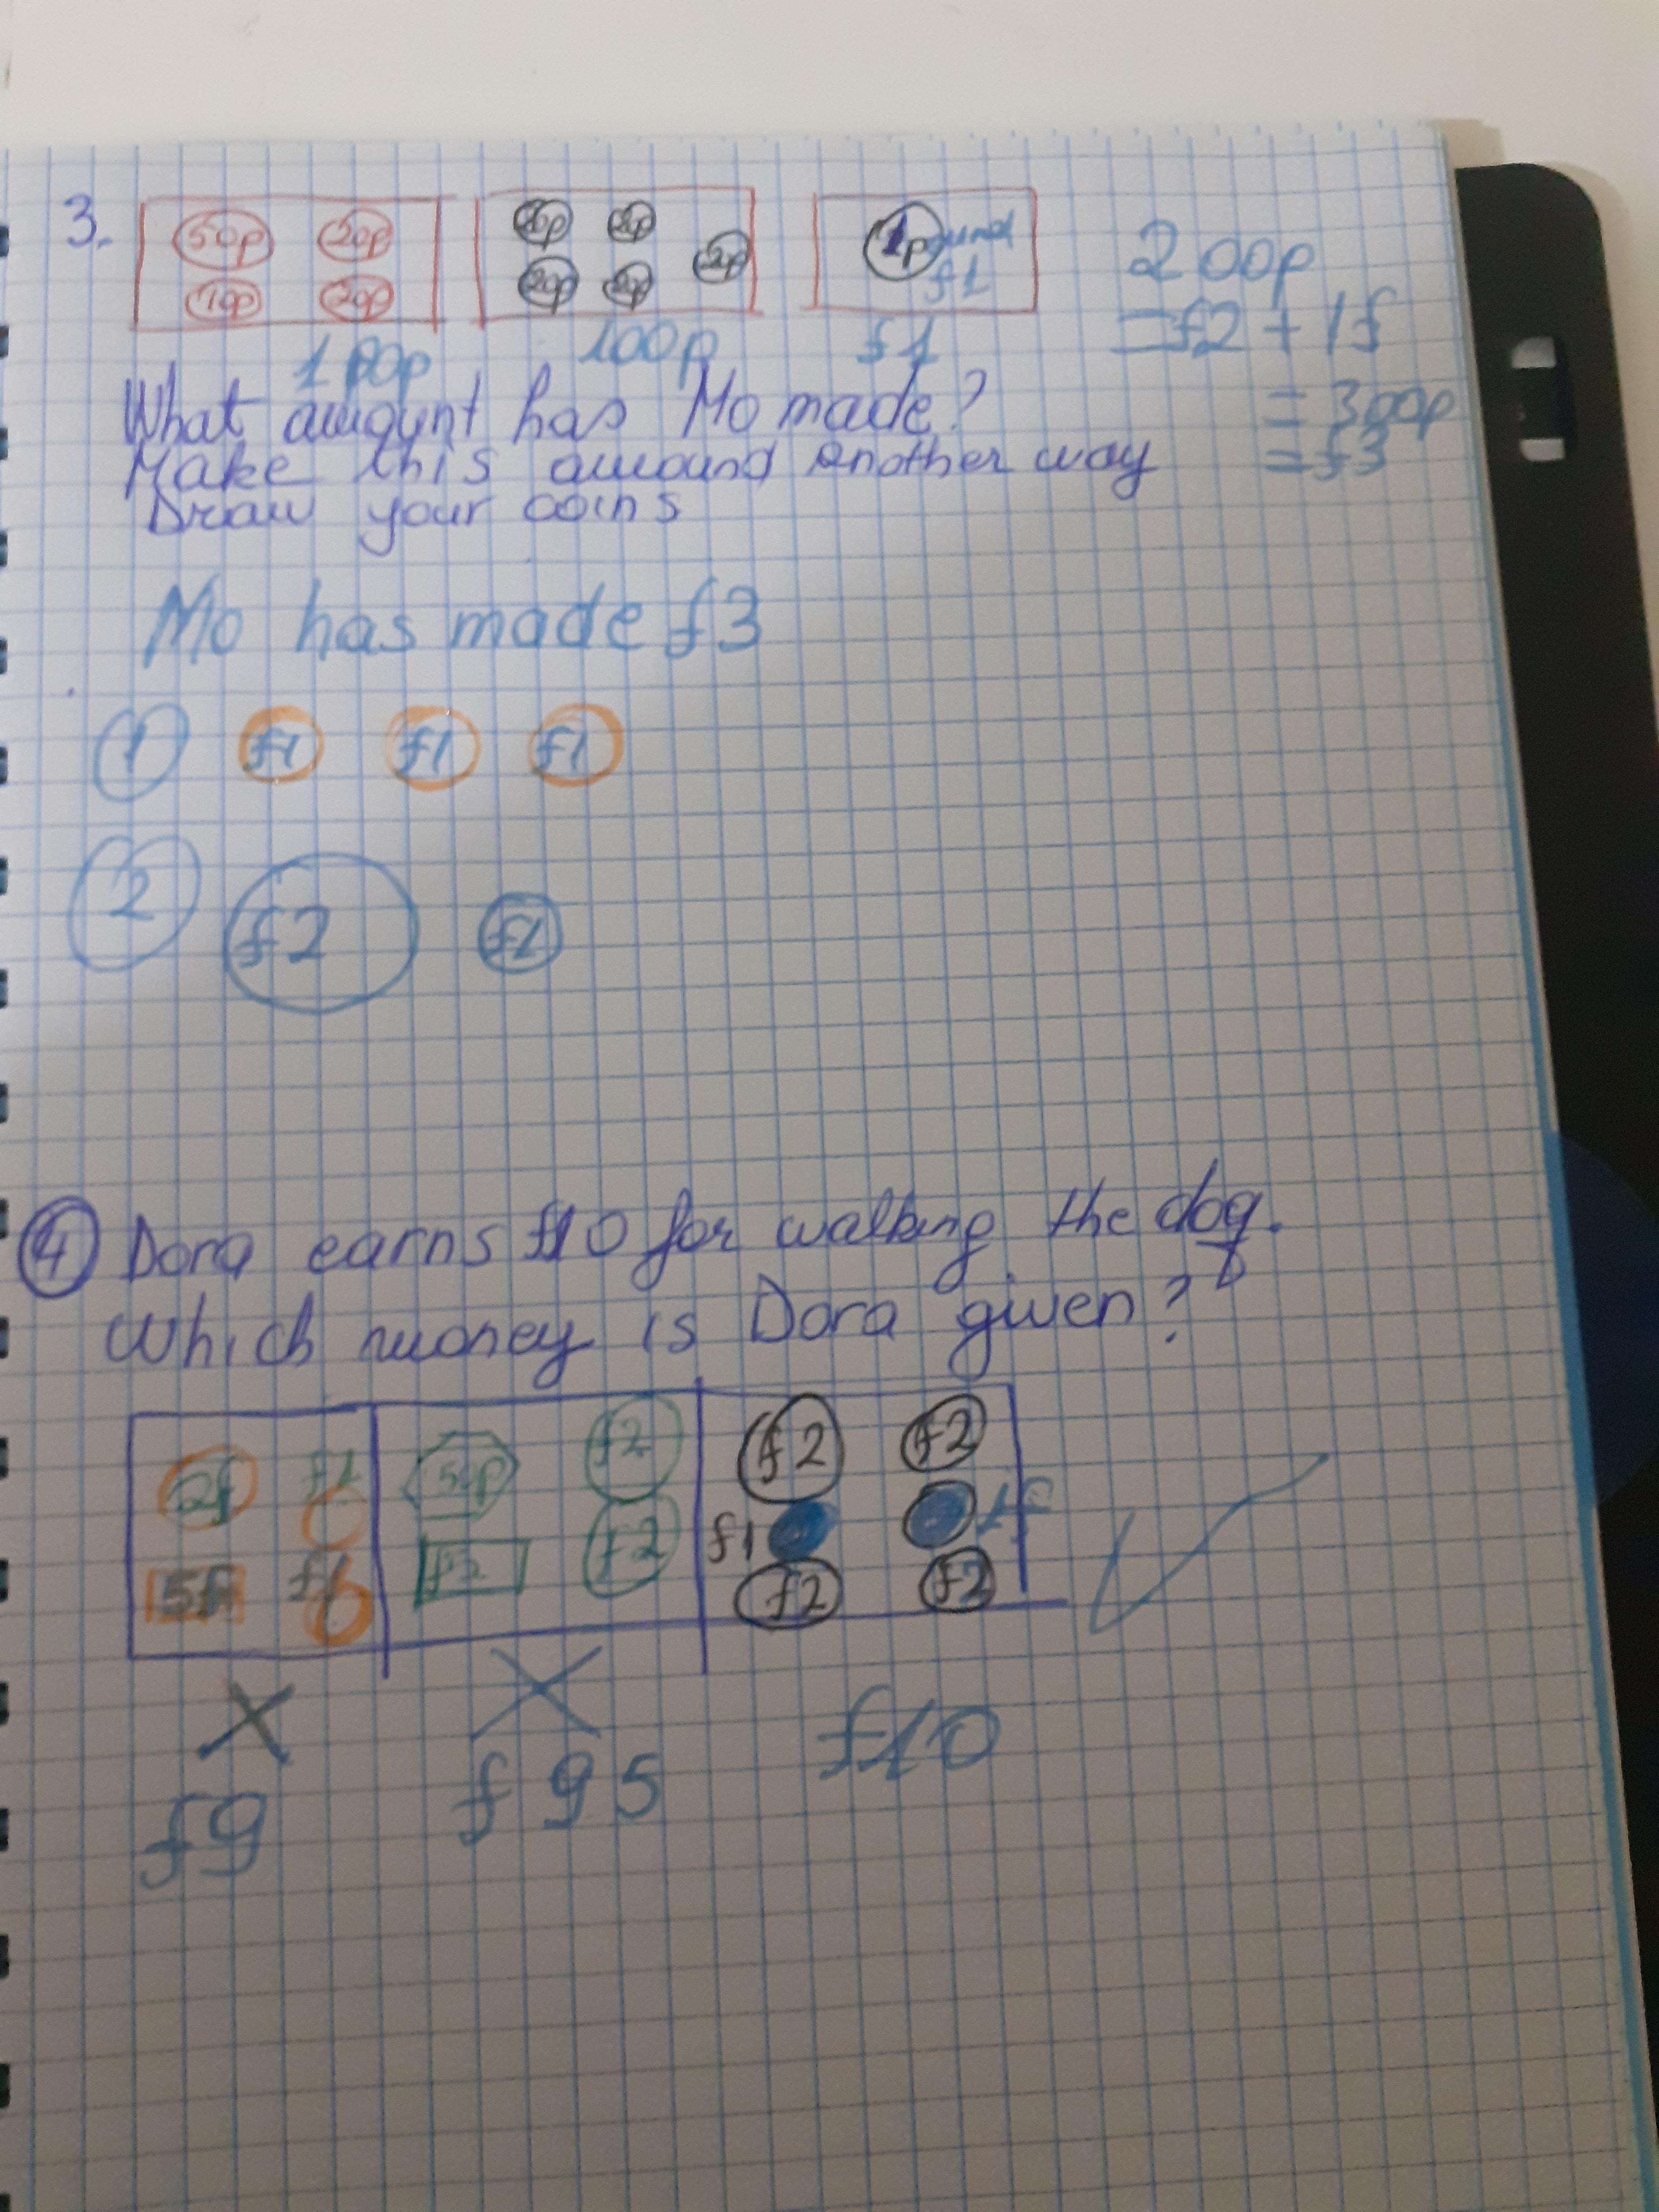 3.
50p 20p 20p 20p 1pound
10p 20p 20p 20p 20p £1
100p 100p £1
200p
=£2 + 1£
= 300p
= £3
What amount has Mo made?
Make this amound another way
Draw your coins
Mo has made £3
1 £1 £1 £1
2 £2 £1
4 Dora earns £10 for walking the dog.
Which money is Dora given?
2£ £1 50p £2 £2 £2
£1 1£
5£ £1 £5 £2 £2 £2
£9 £95 £10